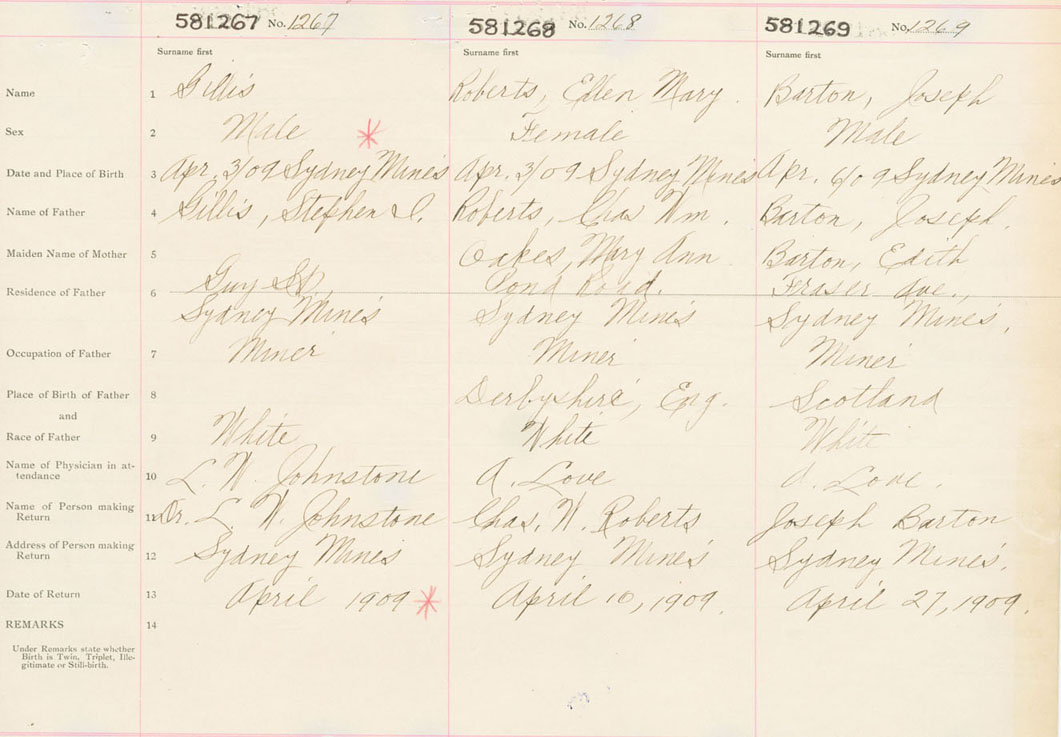 581267 No. 1267 581268 No. 1268 581269 No. 1269
Surname first Surname first Surname first
Name 1 Gillis Roberts, Ellen Mary. Barton, Joseph
Sex 2 Male Female Male
Date and Place of Birth 3 Apr. 3/09 Sydney Mines Apr. 3/09 Sydney Mines Apr. 6/09 Sydney Mines
Name of Father 4 Gillis, Stephen Roberts, Chas Wm. Barton, Joseph.
Maiden Name of Mother 5 Oakes, Mary Ann Barton, Edith
Residence of Father 6 Guy St, Pond Road. Fraser Ave.,
Sydney Mines Sydney Mines Sydney Mines,
Occupation of Father 7 Miner Miner Miner
Place of Birth of Father 8 Derbyshire, Eng. Scotland
and
Race of Father 9 White White White
Name of Physician in at-
tendance 10 L. W. Johnstone A. Love A. Love.
Name of Person making
Return 11 Dr. L. W. Johnstone Chas. W. Roberts Joseph Barton
Address of Person making
Return 12 Sydney Mines Sydney Mines Sydney Mines.
Date of Return 13 April 1909 April 10, 1909. April 27, 1909.
REMARKS 14
Under Remarks state whether
Birth is Twin, Triplet, Ille-
gitimate or Still-birth.